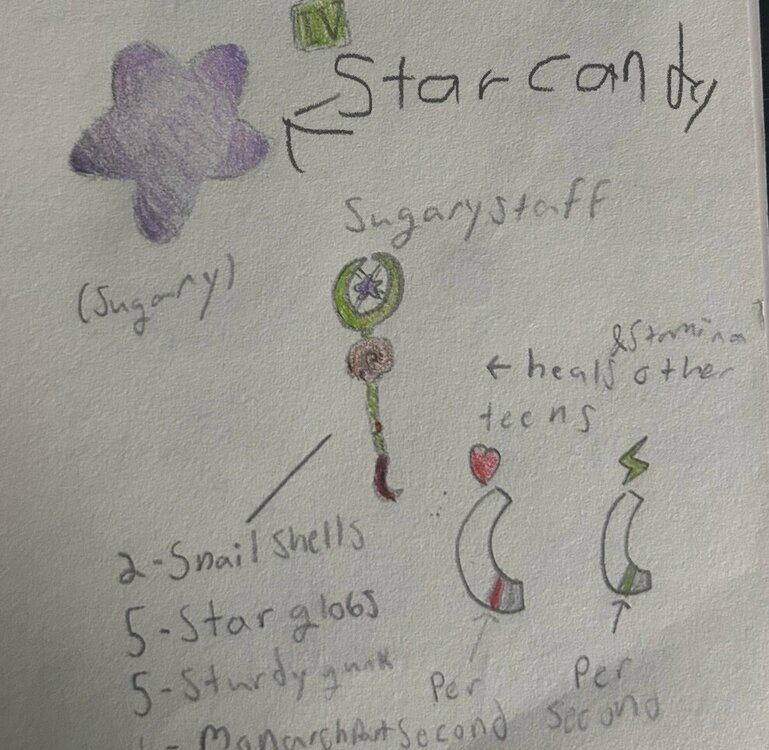 IV
Star candy
Sugary staff
(Sugary)
& Stamina
← heals other
teens
2-Snail shells
5-Star globs
5-Sturdy
Per
second
Per
second